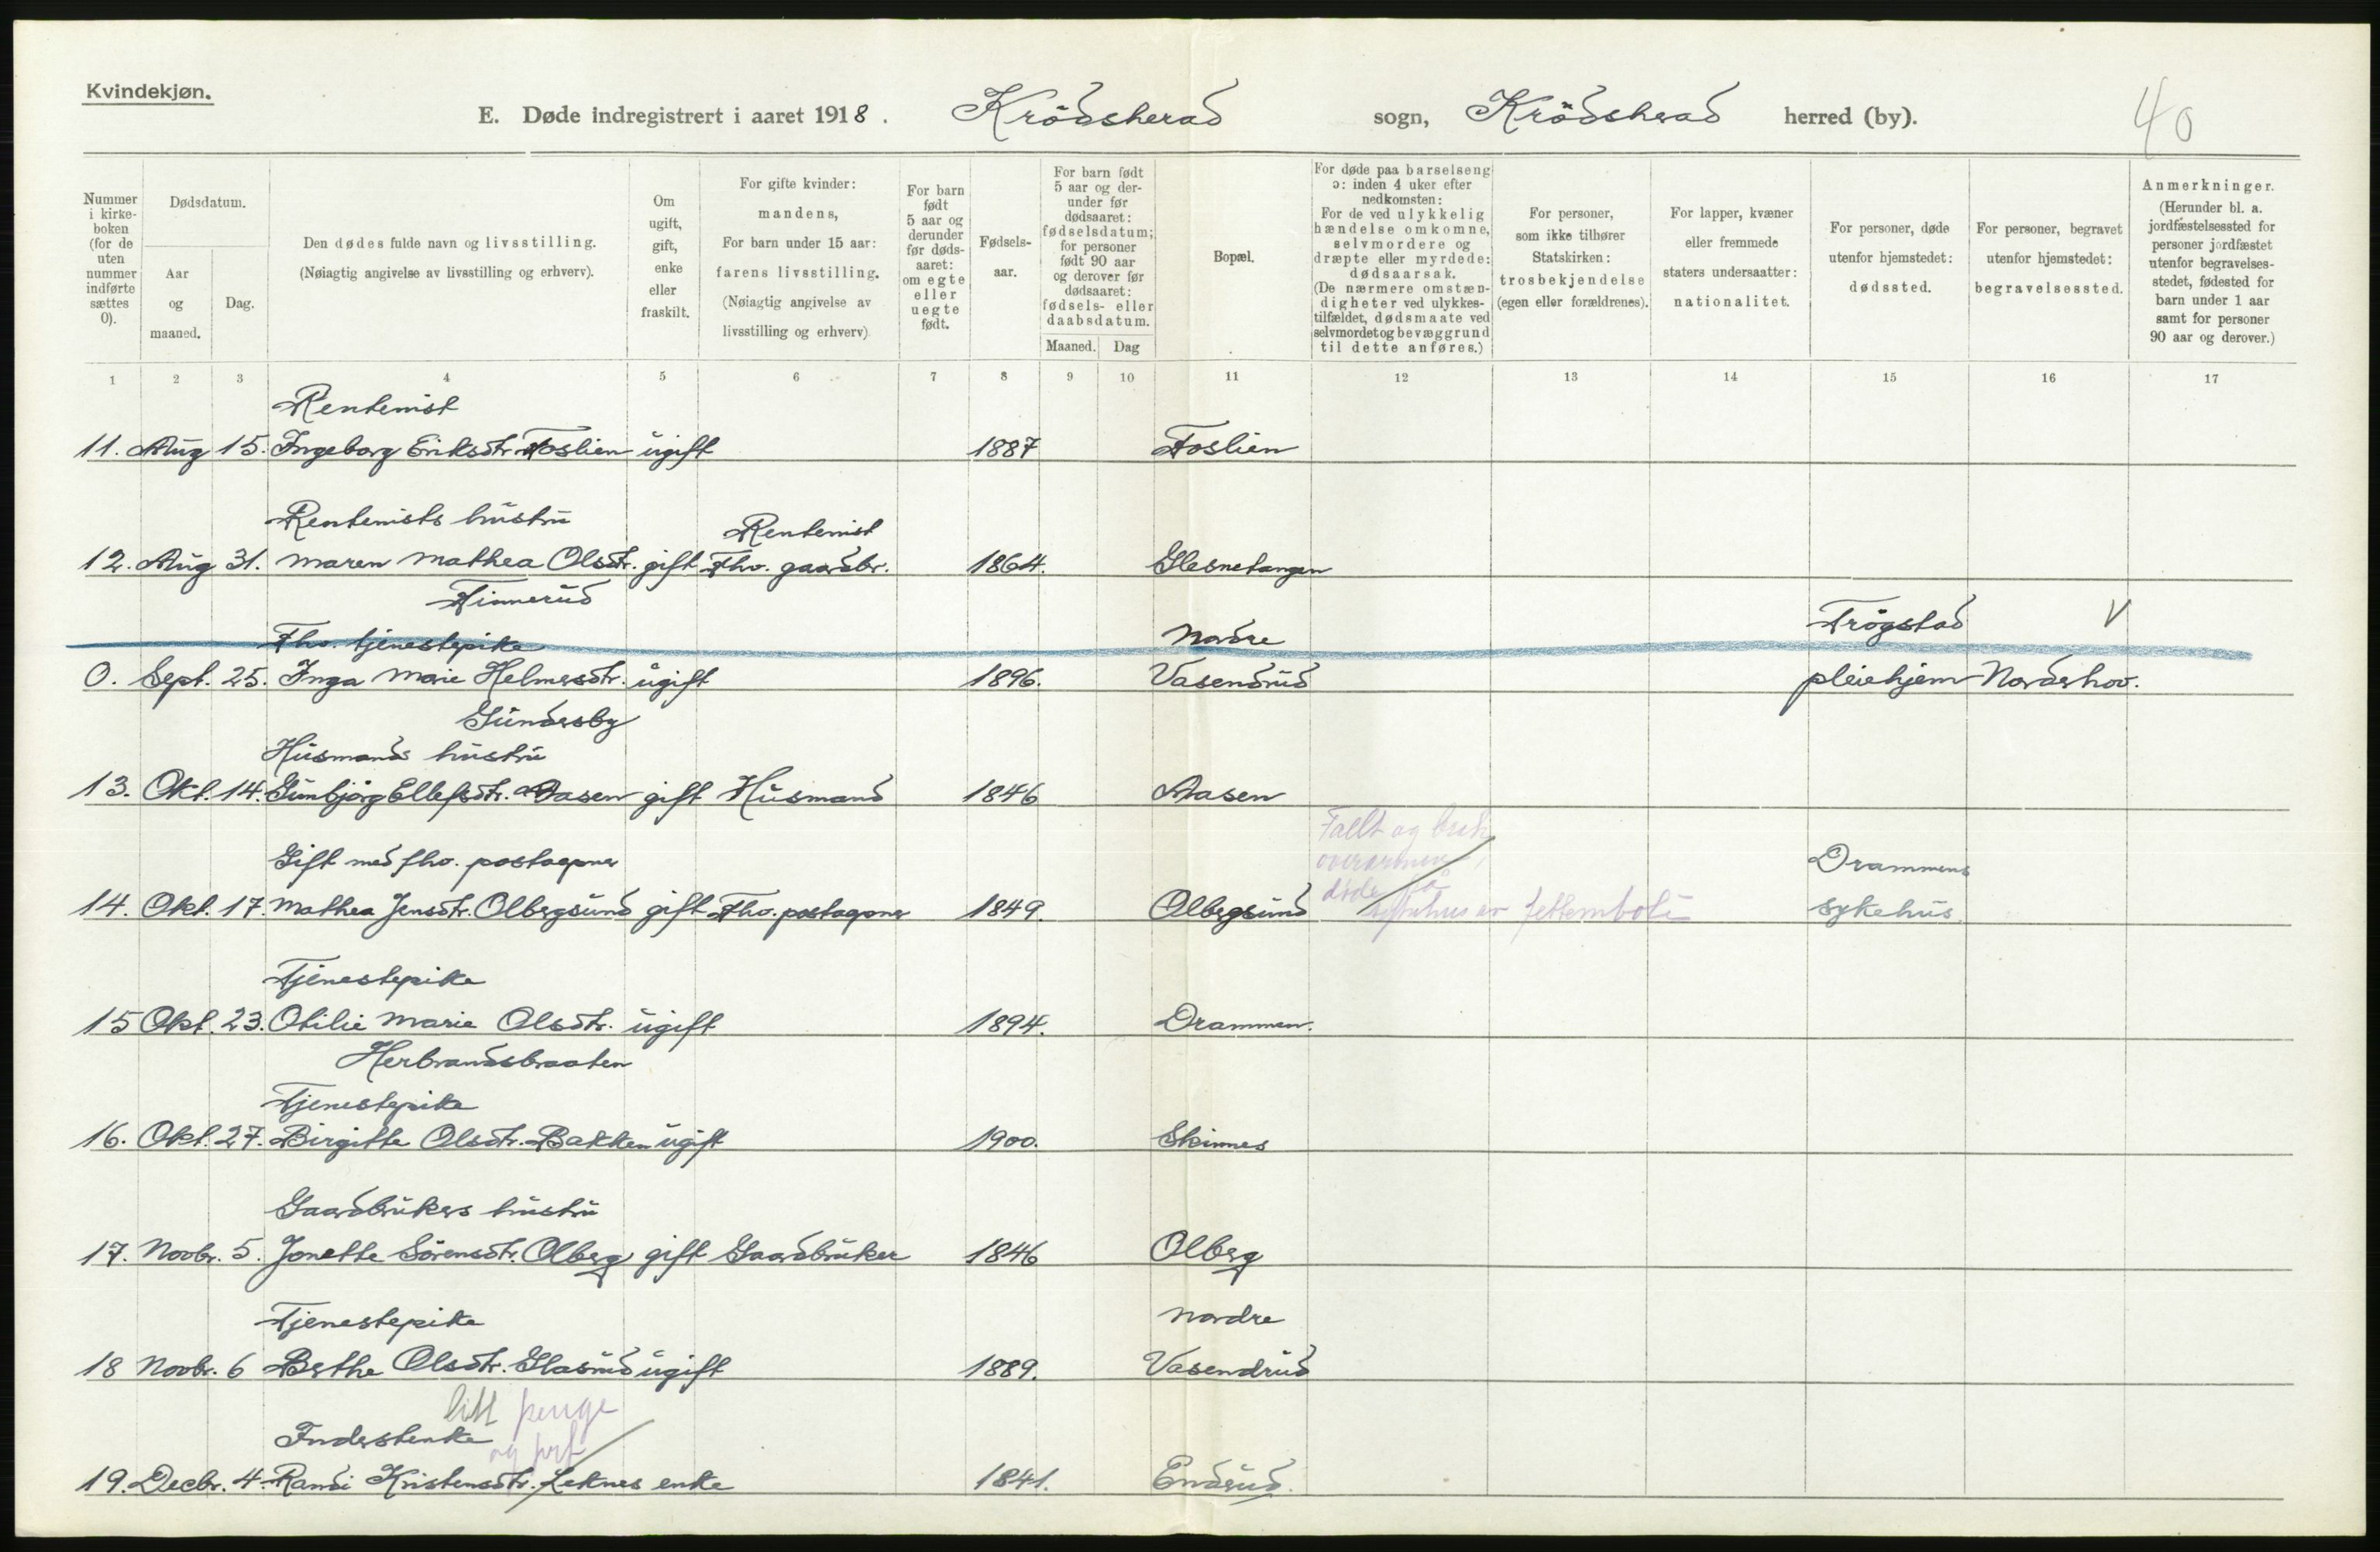 Kvindekjøn.
E. Døde indregistrert i aaret 1918. Krödsherad sogn, Krödsherad herred (by).
40
Nummer i kirkeboken (for de uten nummer indførte sættes 0).
Dødsdatum.
Aar og maaned.
Dag.
Den dødes fulde navn og livsstilling.
(Nøiagtig angivelse av livsstilling og erhverv).
Om ugift, gift, enke eller fraskilt.
For gifte kvinder: mandens, For barn under 15 aar: farens livsstilling. (Nøiagtig angivelse av livsstilling og erhverv)
For barn født 5 aar og derunder før dødsaaret: om egte eller uegte født.
Fødselsaar.
For barn født 5 aar og derunder før dødsaaret: fødselsdatum; for personer født 90 aar og derover før dødsaaret: fødsels- eller daabsdatum.
Maaned.
Dag
Bopæl.
For døde paa barselseng ɔ: inden 4 uker efter nedkomsten: For de ved ulykkelig hændelse omkomne, selvmordere og dræpte eller myrdede: dødsaarsak. (De nærmere omstændigheter ved ulykkestilfældet, dødsmaate ved selvmordet og bevæggrund til dette anføres.)
For personer, som ikke tilhører Statskirken: trosbekjendelse (egen eller forældrenes).
For lapper, kvæner eller fremmede staters undersaatter: nationalitet.
For personer, døde utenfor hjemstedet: dødssted.
For personer, begravet utenfor hjemstedet: begravelsessted.
Anmerkninger. (Herunder bl. a. jordfæstelsessted for personer jordfæstet utenfor begravelsesstedet, fødested for barn under 1 aar samt for personer 90 aar og derover.)
1 2 3 4 5 6 7 8 9 10 11 12 13 14 15 16 17
Rentenist
11. Aug 15. Ingeborg Eriksdtr. Foslien ugift 1887 Foslien
Rentenists hustru Rentenist
12. Aug 31. Maren Mathea Olsdtr. gift Fhv. gaardbr. 1864. Glesnetangen
Finnerud
Fhv. tjenestepike Nordre Trögstad V
0. Sept. 25. Inga Marie Helmersdtr. ugift 1896. Vasendrud pleiehjem Norderhov.
Gundersby
Husmands hustru
13. Okt. 14. Gunbjörg Ellefsdtr. Aasen gift Husmand 1846 Aasen
Fallt og
Gift med fhv. postaapner overarmen Drammens
døde på
14. Okt. 17. Mathea Jensdtr. Olbergsund gift Fhv. postaapner 1849. Olbergsund sykehus av fettemboli sykehus.
Tjenestepike
15 Okt. 23. Otilie Marie Olsdtr. ugift 1894. Drammen.
Herbrandsbraaten
Tjenestepike
16. Okt. 27. Birgitte Olsdtr. Bakken ugift 1900. Skinnes
Gaardbrukers hustru
17. Novbr. 5. Jonette Sörensdtr. Olberg gift Gaardbruker 1846 Olberg
Tjenestepike Nordre
18 Novbr. 6 Berthe Olsdtr. Glasrud ugift 1889. Vasendrud
litt penge
Inderstenke og
19. Decbr. 4. Randi Kristensdtr. Leknes enke 1841. Endrud.